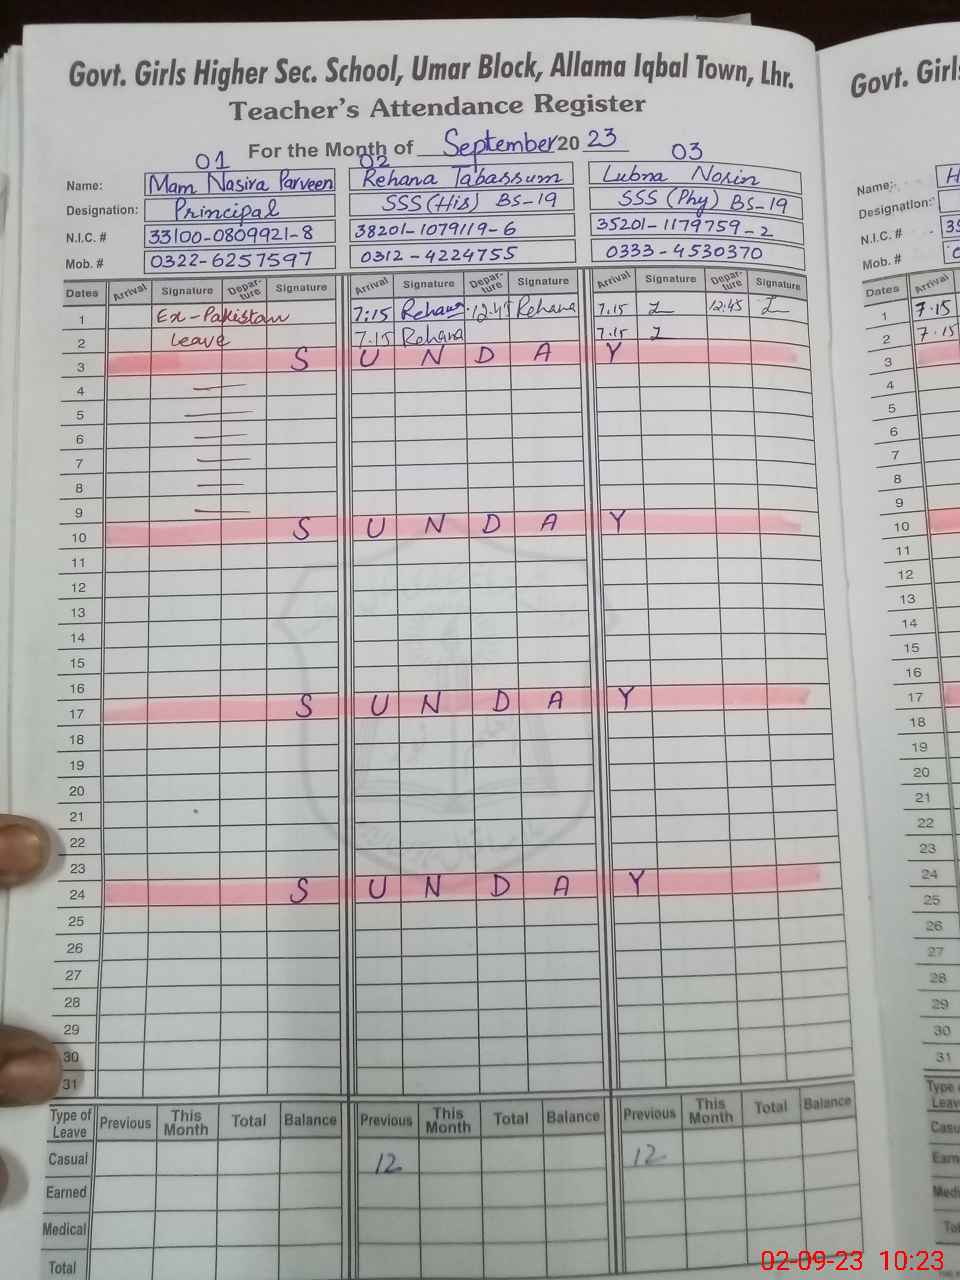 Govt. Girls Higher Sec. School, Umar Block, Allama Iqbal Town, Lhr.
Teacher's Attendance Register
For the Month of September 2023
01 02 03
Name: Mam Nasira Parveen Rehana Tabassum Lubna Nosin
Designation: Principal SSS (His) BS-19 SSS (Phy) BS-19
N.I.C. # 33100-0809921-8 38201-1079119-6 35201-1179759-2
Mob. # 0322-6257597 0312-4224755 0333-4530370
Dates Arrival Signature Departure Signature Arrival Signature Departure Signature Arrival Signature Departure Signature
1 Ex-Pakistan 7:15 Rehana 12:45 Rehana 7.15 12:45
2 Leave 7.15 Rehana 7.15
3 S U N D A Y
4
5
6
7
8
9
10 S U N D A Y
11
12
13
14
15
16
17 S U N D A Y
18
19
20
21
22
23
24 S U N D A Y
25
26
27
28
29
30
31
Type of Leave Previous This Month Total Balance Previous This Month Total Balance Previous This Month Total Balance
Casual 12 12
Earned
Medical
Total
Govt. Girls
Name: H
Designation:
N.I.C. # 35
Mob. # 0
Dates Arrival
1 7.15
2 7.15
3
4
5
6
7
8
9
10
11
12
13
14
15
16
17
18
19
20
21
22
23
24
25
26
27
28
29
30
31
Type of
Leav
Casu
Earn
Medi
Tot
02-09-23 10:23